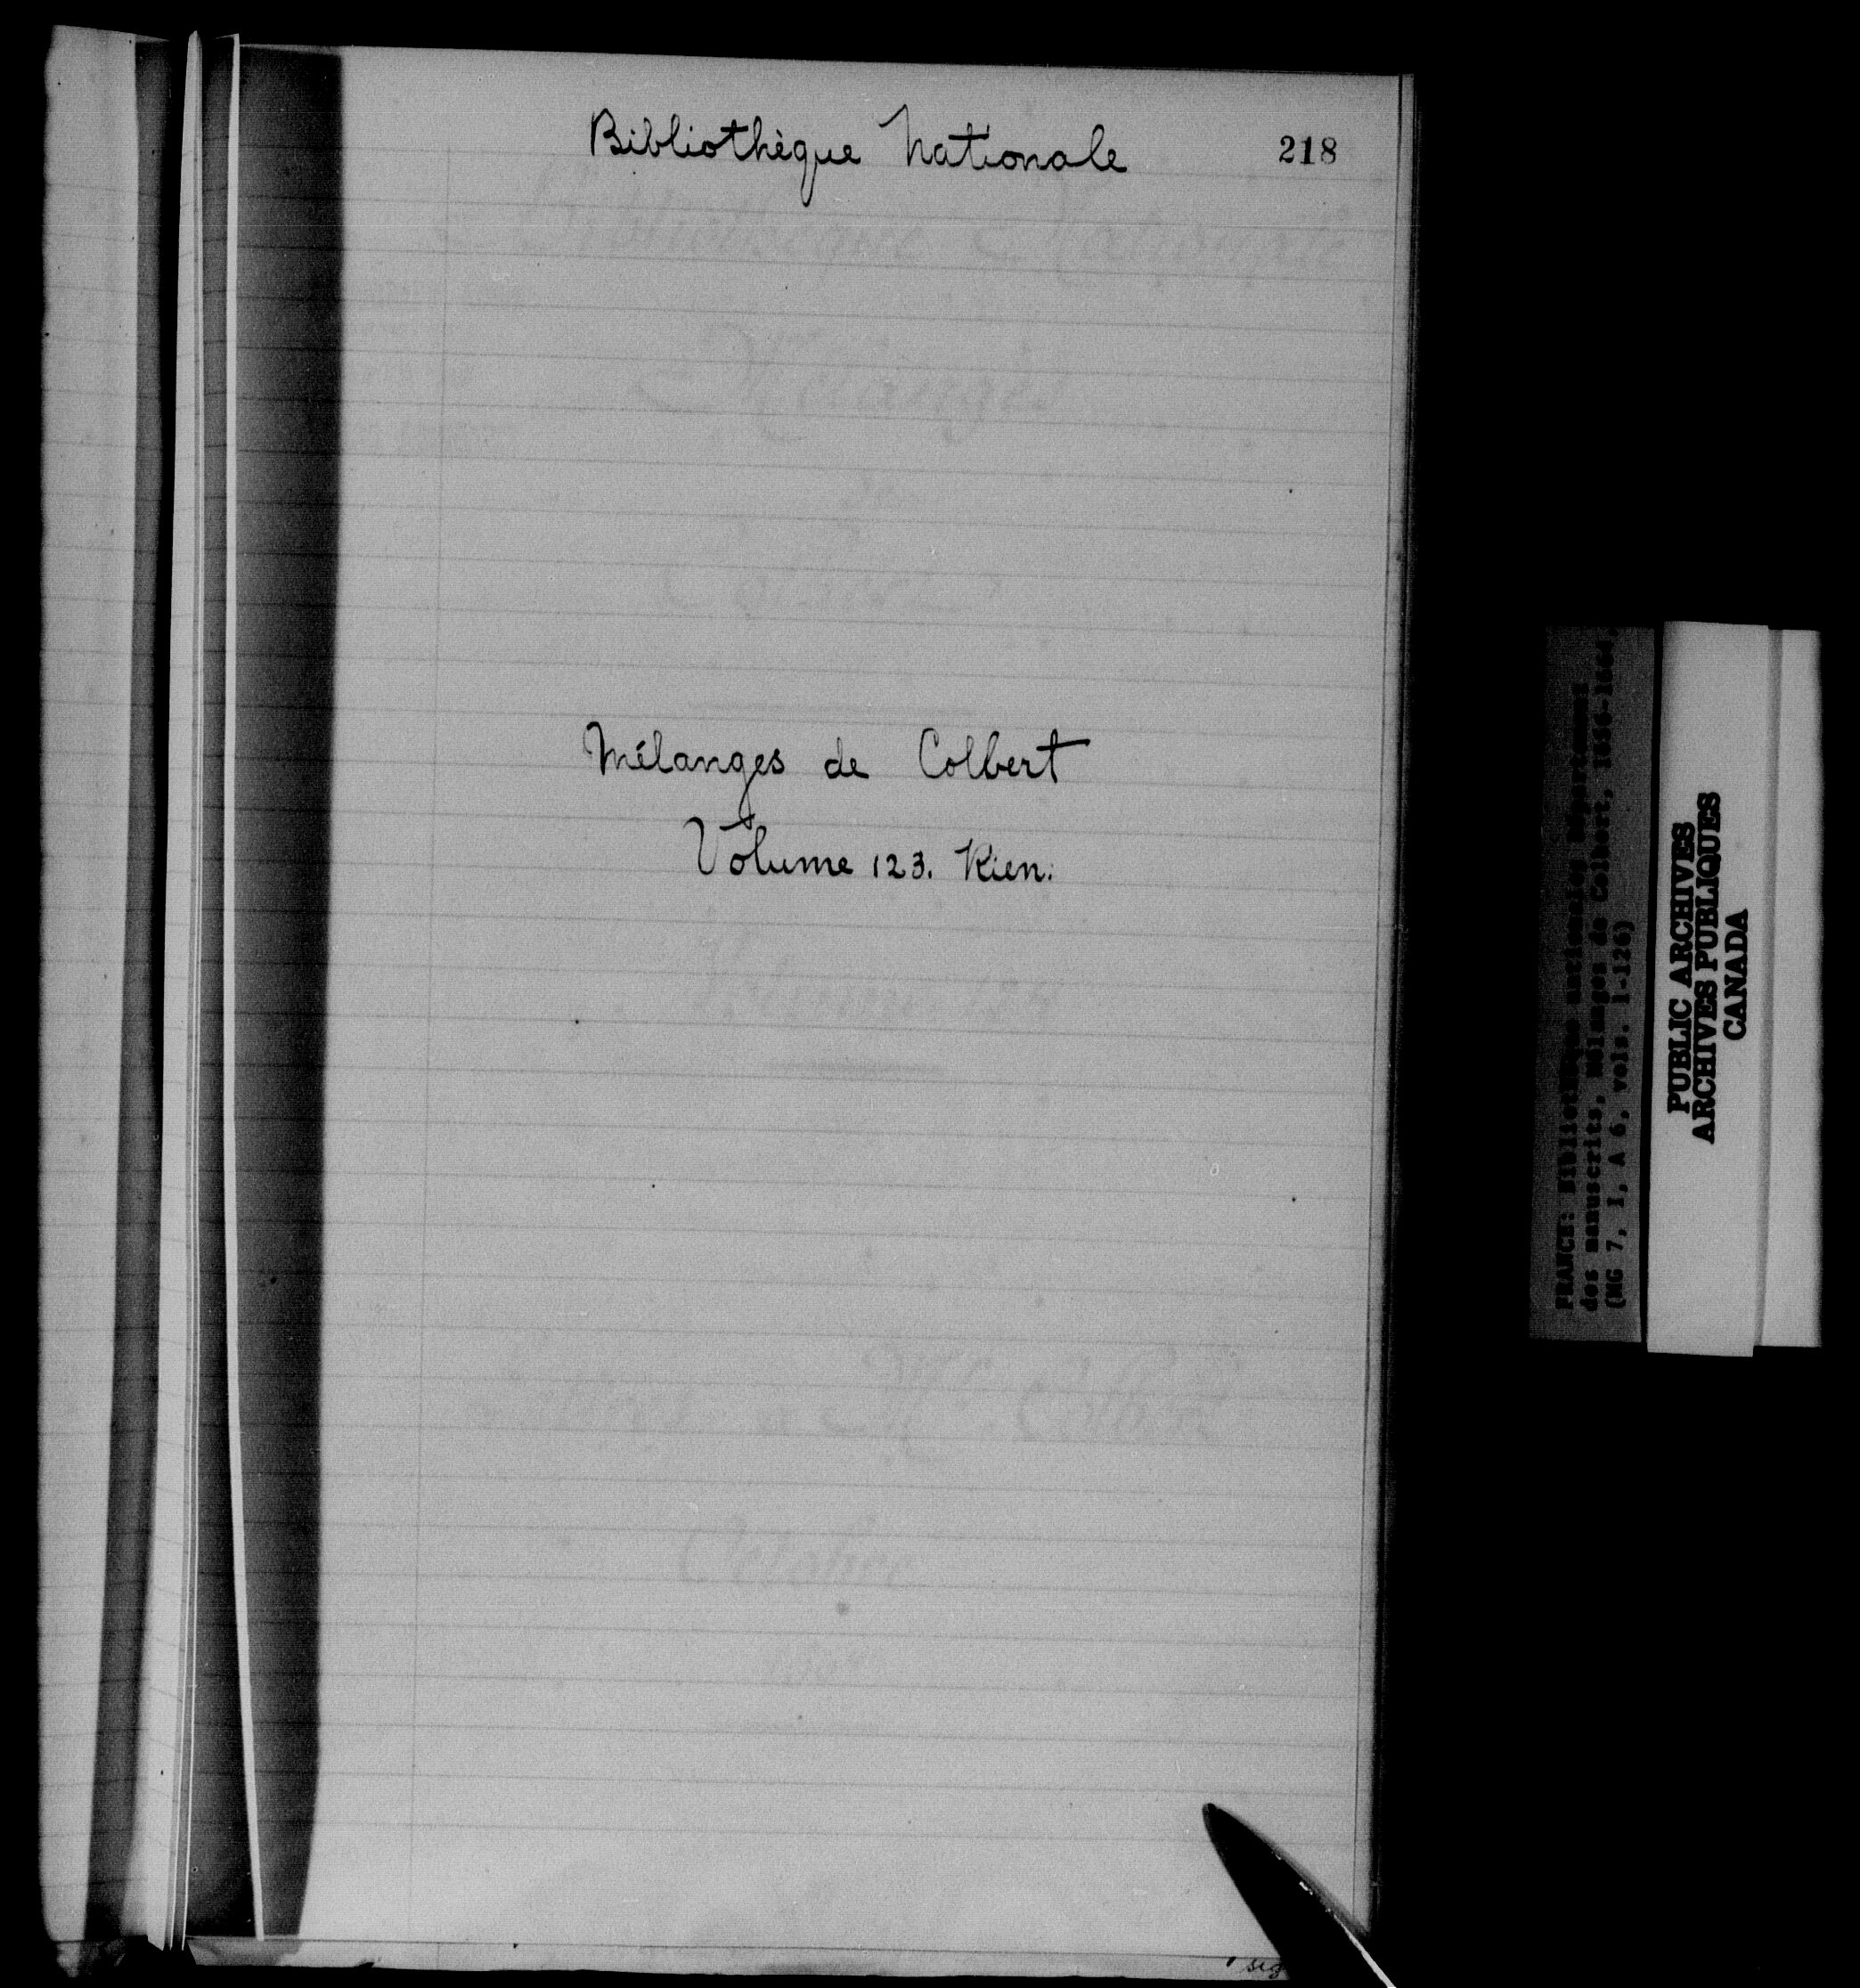 Bibliothèque Nationale
218
Mélanges de Colbert
Volume 123. Rien.
FRANCE: Bibliothèque nationale, Département
des manuscrits, Mélanges de Colbert, 1656-1664,
(MG 7, I, A 6, vols. 1-126)
PUBLIC ARCHIVES
ARCHIVES PUBLIQUES
CANADA